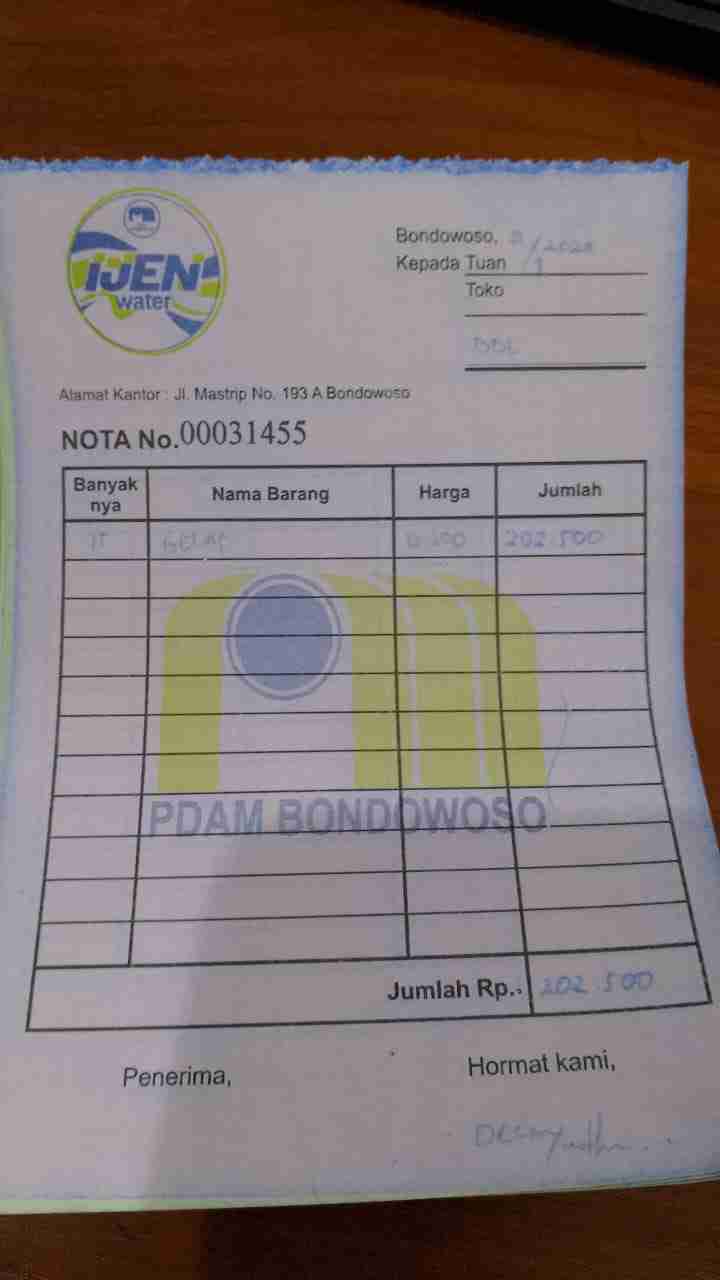 IJEN
water
Bondowoso, /2020
Kepada Tuan 1
Toko
Alamat Kantor : Jl. Mastrip No. 193 A Bondowoso
NOTA No.00031455
Banyak nya Nama Barang Harga Jumlah
GELAS 202.500
PDAM BONDOWOSO
Jumlah Rp.. 202.500
Penerima, Hormat kami,